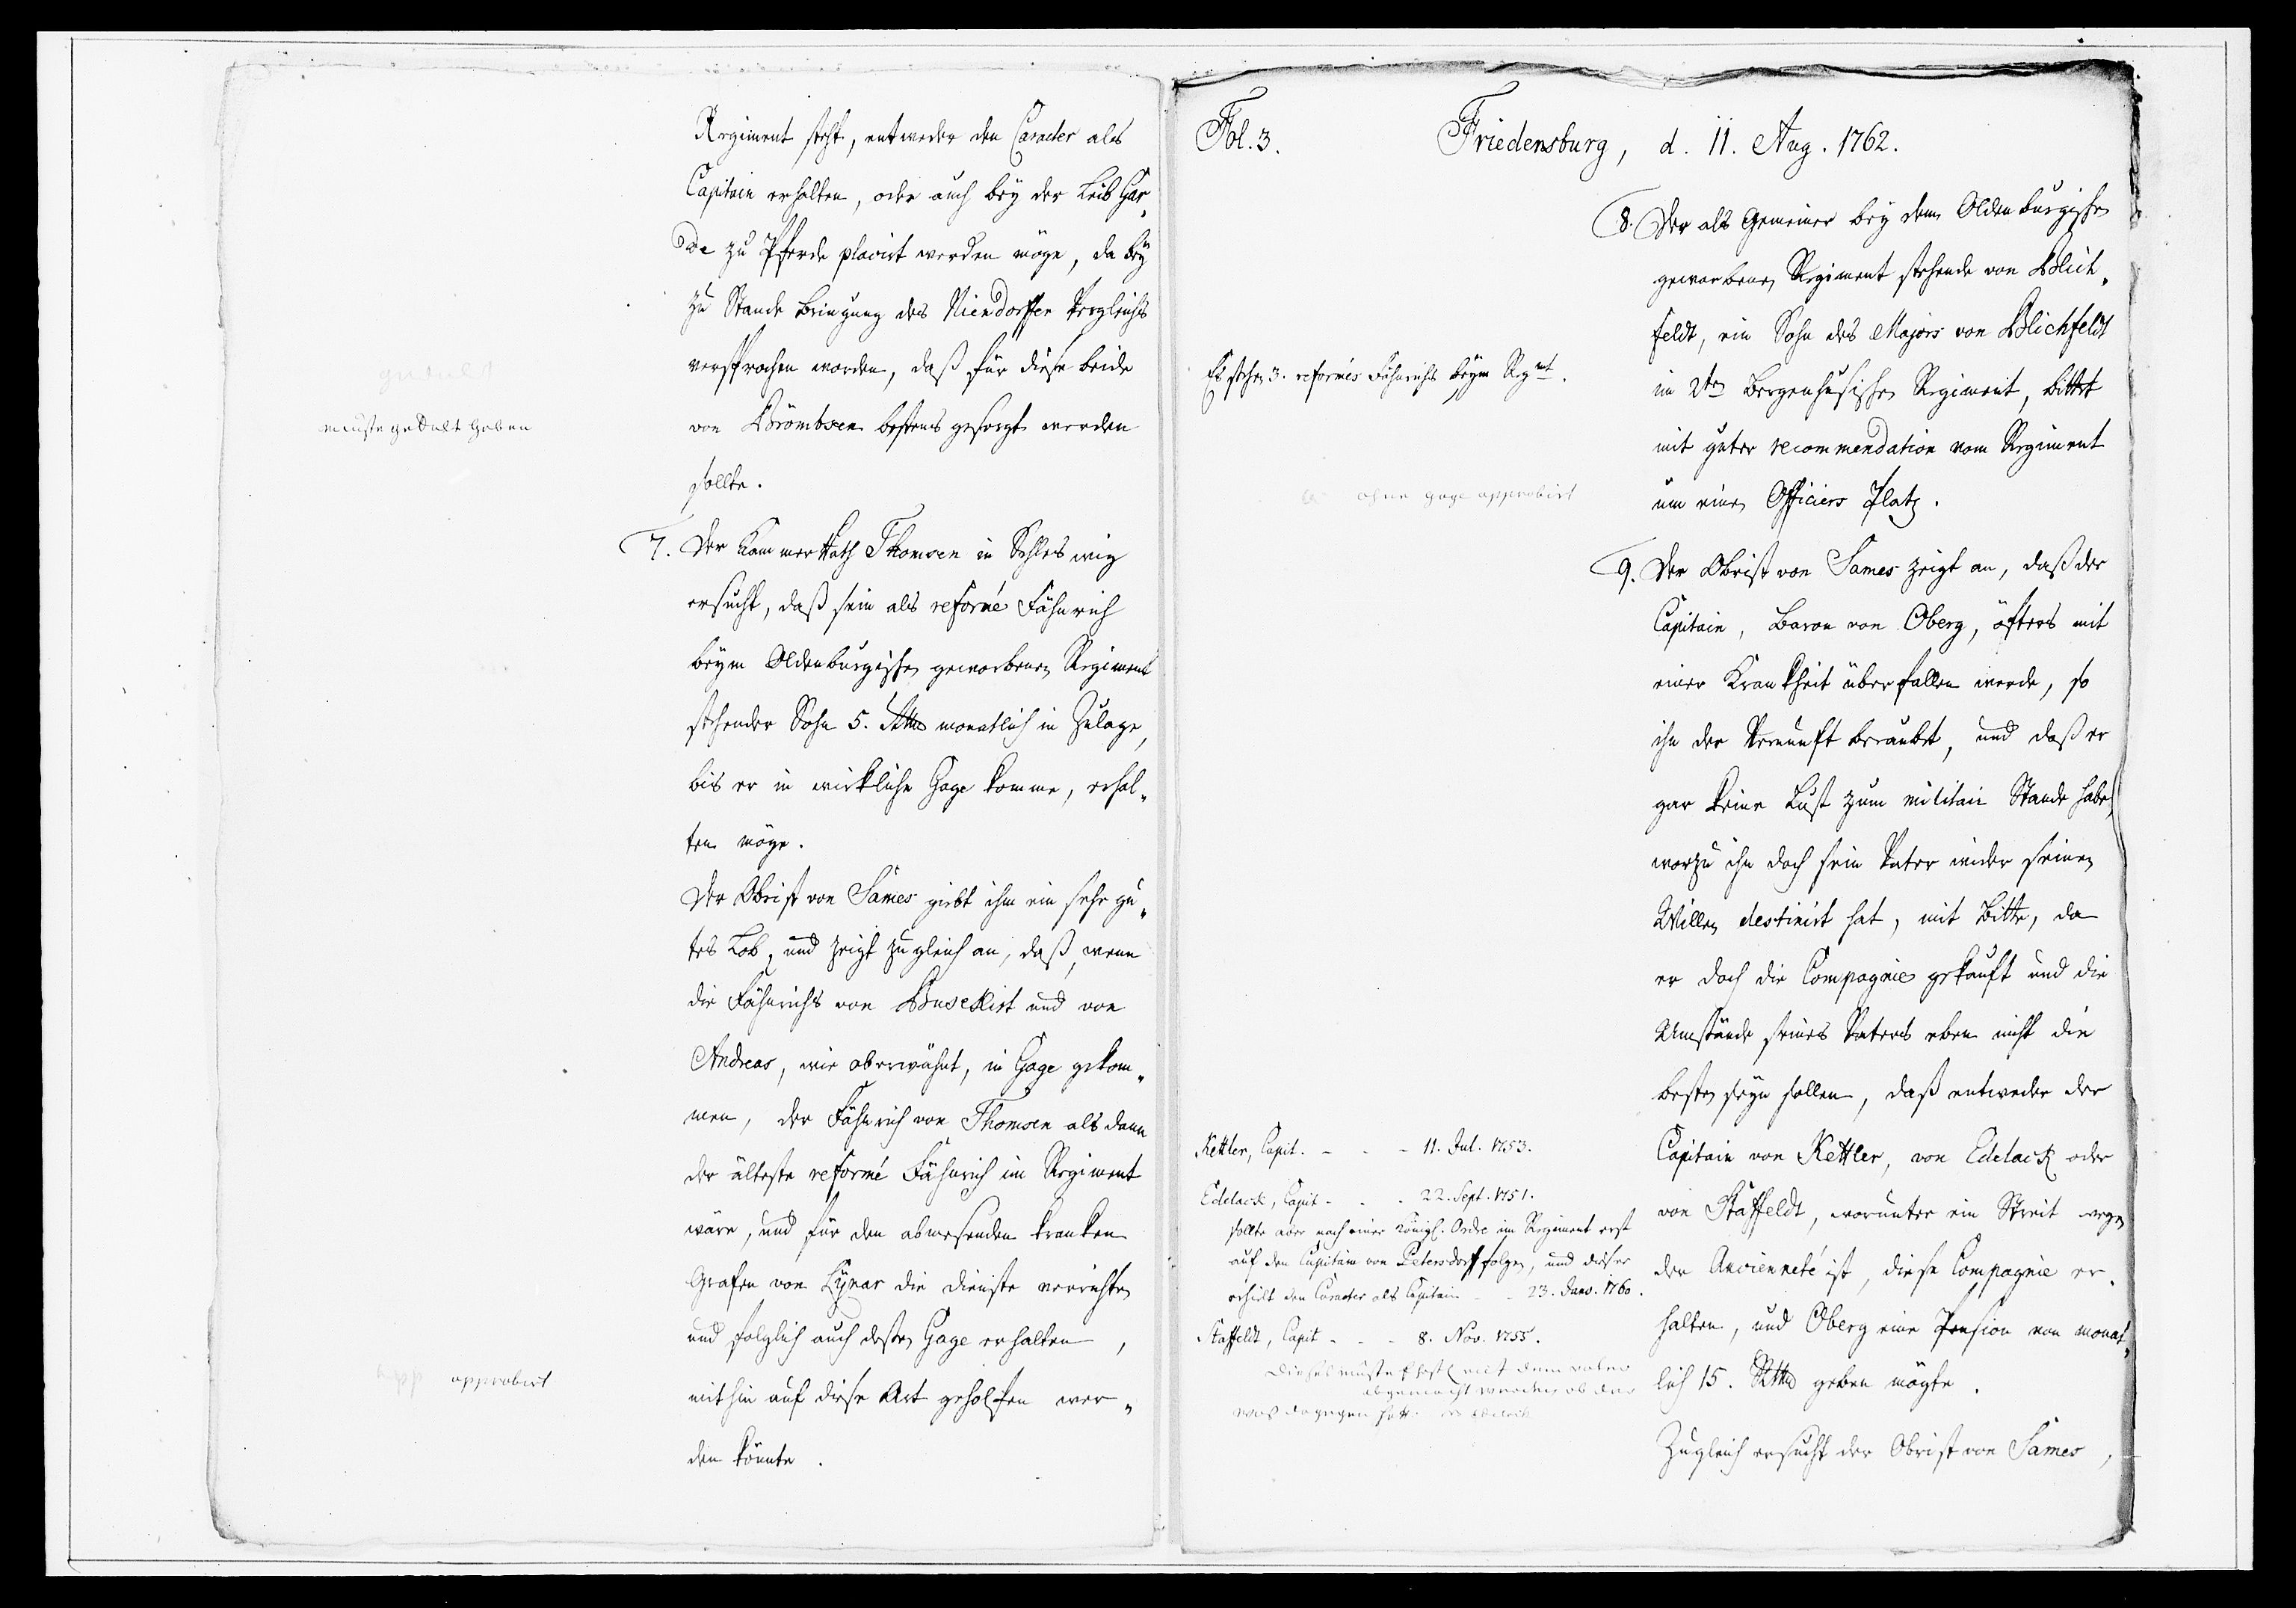 Regiment steht, entweder den Caracter als
Capitain erhalten, oder auch bey der Leib Gar„
de zu Pferde placirt werden möge, da bey
zu Stande bringung des Niendorffer Vergleichs
versprochen worden, daß für diese beide
von Brömbsen bestens gesorgt werden
sollte.
gedult
müste gedult haben
7. Der Cammer Rath Thomsen in Schleswig
ersucht, daß sein als reformé Fähnrich
beym Oldenburgischen geworbenen Regiment
stehender Sohn 5. Rthlr monatlich in Zulage,
bis er in wirkliche Gage komme, erhal„
ten möge.
Der Obrist von Sames giebt ihm ein sehr gu„
tes Lob, und zeigt zugleich an, daß, wenn
die Fähnrichs von Buseckist und von
Andreas, wie oberwähnt, in Gage gekom„
men, der Fähnrich von Thomsen alsdann
der älteste reformé Fähnrich im Regiment
wäre, und für den abwesenden kranken
Grafen von Lynar die Dienste verrichten
und folglich auch dessen Gage erhalten,
mithin auf diese Art geholfen wer„
den könnte.
approbirt
Fol. 3.
Friedensburg, d. 11. Aug. 1762.
8. Der als Gemeiner bey dem Oldenburgischen
geworbenen Regiment stehende von Blich„
feldt, ein Sohn des Majors von Blichfeldt
im 2ten Bergenhusischen Regiment, bittet
mit guter recommendation vom Regiment
um einen Officiers Platz.
Es stehen 3. reformés Fähnrichs beym Regmt.
ohne gage approbirt
9. Der Obrist von Sames zeigt an, daß der
Capitain, Baron von Oberg, öfters mit
einer Krankheit überfallen werde, so
ihn der Vernunft beraubet, und daß er
gar keine Lust zum militair Stande habe,
worzu ihn doch sein Vater wider seinen
Willen destinirt hat, mit Bitte, da
er doch die Compagnie gekauft und die
Umstände seines Vaters eben nicht die
besten seyn sollen, daß entweder der
Capitain von Kettler, von Edelack oder
von Staffeldt, worunter ein Streit wegen
der Ancienneté ist, diese Compagnie er„
halten, und Oberg eine Pension von monat„
lich 15. Rthlr geben mögte.
Zugleich ersucht der Obrist von Sames,
Kettler, Capit. - - - 11. Jul. 1753.
Edelack, Capit - - - 22. Sept. 1751.
sollte aber nach einer Königl. Ordre im Regiment erst
auf den Capitain von Petersdorff folgen, und dieser
erhielt den Caracter als Capitain - - 23. Janv. 1760.
Staffeldt, Capit - - - 8. Nov. 1755.
dieses müste erst mit dem vater
abgemacht werden ob der
was dagegen hette